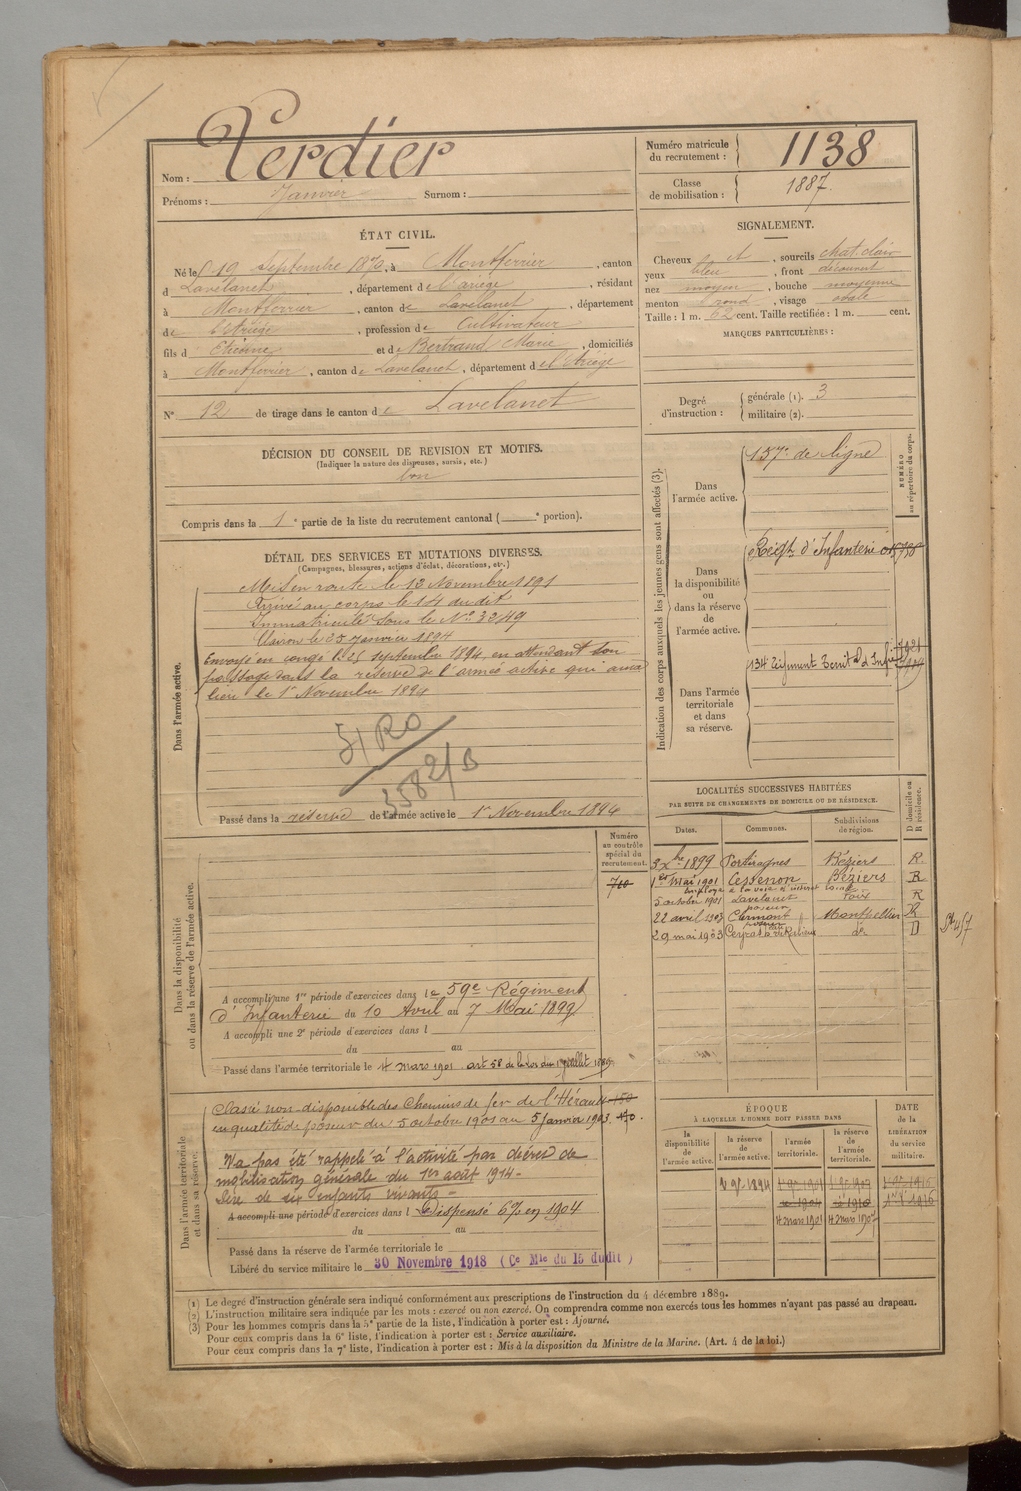 Nom : Verdier
Prénoms : Janvier Surnom :
Numéro matricule du recrutement : 1138
Classe de mobilisation : 1887.
ÉTAT CIVIL.
Né le 19 septembre 1870, à Montferrier, canton
d Lavelanet, département de l'ariège, résidant
à Montferrier, canton de Lavelanet, département
de l'Ariège, profession de Cultivateur
fils d Etienne et de Bertrand Marie, domiciliés
à Montferrier, canton de Lavelanet, département de l'Ariège
N° 12 de tirage dans le canton de Lavelanet
SIGNALEMENT.
Cheveux et, sourcils chat. clair
yeux bleu, front découvert
nez moyen, bouche moyenne
menton rond, visage ovale
Taille : 1 m. 62 cent. Taille rectifiée : 1 m. cent.
MARQUES PARTICULIÈRES :
Degré d'instruction : générale (1). 3
militaire (2).
DÉCISION DU CONSEIL DE REVISION ET MOTIFS.
(Indiquer la nature des dispenses, sursis, etc.)
bon
Compris dans la 1e partie de la liste du recrutement cantonal ( e portion).
DÉTAIL DES SERVICES ET MUTATIONS DIVERSES.
(Campagnes, blessures, actions d'éclat, décorations, etc.)
Dans l'armée active.
Mis en route le 13 Novembre 1891
Arrivé au corps le 14 du dit
Immatriculé sous le N° 3249
Clairon le 25 Janvier 1894
Envoyé en congé le 25 septembre 1894, en attendant son
passage dans la réserve de l'armée active qui aura
lieu le 1er Novembre 1894
51 RO
3582/B
Passé dans la réserve de l'armée active le 1er Novembre 1894
Indication des corps auxquels les jeunes gens sont affectés (3).
NUMÉRO au répertoire du corps.
Dans l'armée active.
157e de ligne
Dans la disponibilité ou dans la réserve de l'armée active.
Régt d'Infanterie
Dans l'armée territoriale et dans sa réserve.
134 régiment Territ al d'Infrie
LOCALITÉS SUCCESSIVES HABITÉES
PAR SUITE DE CHANGEMENTS DE DOMICILE OU DE RÉSIDENCE.
Dates. Communes. Subdivisions de région. D domicile ou R résidence.
3 Xbre 1899 Portiragnes Béziers R.
1er Mai 1901 Cessenon Béziers R
5 octobre 1901 Lavelanet Foix R
poseur
22 avril 1903 Clermont Montpellier R
poseur
29 mai 1903 do D
Dans la disponibilité ou dans la réserve de l'armée active.
Numéro au contrôle spécial du recrutement.
710
A accompli une 1re période d'exercices dans le 59e Régiment
d'Infanterie du 10 Avril au 7 Mai 1899
A accompli une 2e période d'exercices dans l
du au
Passé dans l'armée territoriale le 4 mars 1901 art 58 de la loi du 15 juillet 1889
Dans l'armée territoriale et dans sa réserve.
Classé non-disponible des Chemins de fer de l'Hérault
en qualité de poseur du 5 octobre 1901 au 5 janvier 1903.
N'a pas été rappelé à l'activité par décret de
mobilisation générale du 1er août 1914 -
Père de six enfants vivants -
A accompli une période d'exercices dans l Dispensé 6% en 1904
du au
Passé dans la réserve de l'armée territoriale le
Libéré du service militaire le 30 Novembre 1918 ( Ce Mle du 15 dudit )
ÉPOQUE
À LAQUELLE L'HOMME DOIT PASSER DANS
la disponibilité de l'armée active. la réserve de l'armée active. l'armée territoriale. la réserve de l'armée territoriale.
DATE de la LIBÉRATION du service militaire.
4 mars 1901 4 mars 1907
(1) Le degré d'instruction générale sera indiqué conformément aux prescriptions de l'instruction du 4 décembre 1889.
(2) L'instruction militaire sera indiquée par les mots : exercé ou non exercé. On comprendra comme non exercés tous les hommes n'ayant pas passé au drapeau.
(3) Pour les hommes compris dans la 5e partie de la liste, l'indication à porter est : Ajourné.
Pour ceux compris dans la 6e liste, l'indication à porter est : Service auxiliaire.
Pour ceux compris dans la 7e liste, l'indication à porter est : Mis à la disposition du Ministre de la Marine. (Art. 4 de la loi.)